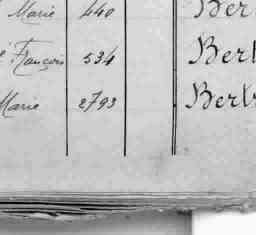 Marie 440 Ber
François 534 Bert
Marie 2793 Bertr